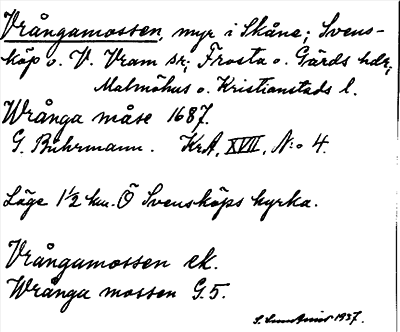 Vrångamossen, myr i Skåne; Svens-
köp o. V. Vram sr; Frosta o. Gärds hdr;
Malmöhus o. Kristianstads l.
Wrånga måse 1687.
G. Buhrmann. KrA, XVII, N:o 4.
Läge 1½ km. Ö Svensköps kyrka.
Vrångamossen ek.
Wrånga mossen G.5.
1937.